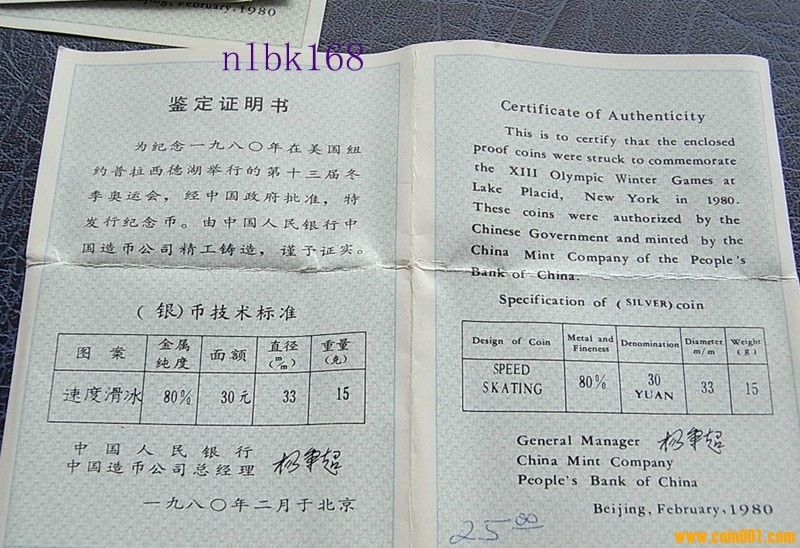 Beijing, February, 1980
n1bk168
鉴定证明书
为纪念一九八〇年在美国纽
约普拉西德湖举行的第十三届冬
季奥运会，经中国政府批准，特
发行纪念币。由中国人民银行中
国造币公司精工铸造，谨予证实。
(银)币技术标准
图案 金属纯度 面额 直径(m/m) 重量(克)
速度滑冰 80% 30元 33 15
中国人民银行
中国造币公司总经理
一九八〇年二月于北京
Certificate of Authenticity
This is to certify that the enclosed
proof coins were struck to commemorate
the XIII Olympic Winter Games at
Lake Placid, New York in 1980.
These coins were authorized by the
Chinese Government and minted by the
China Mint Company of the People's
Bank of China.
Specification of (SILVER) coin
Design of Coin Metal and Fineness Denomination Diameter m/m Weight (g)
SPEED SKATING 80% 30 YUAN 33 15
General Manager
China Mint Company
People's Bank of China
Beijing, February, 1980
25.00
www.coin001.com